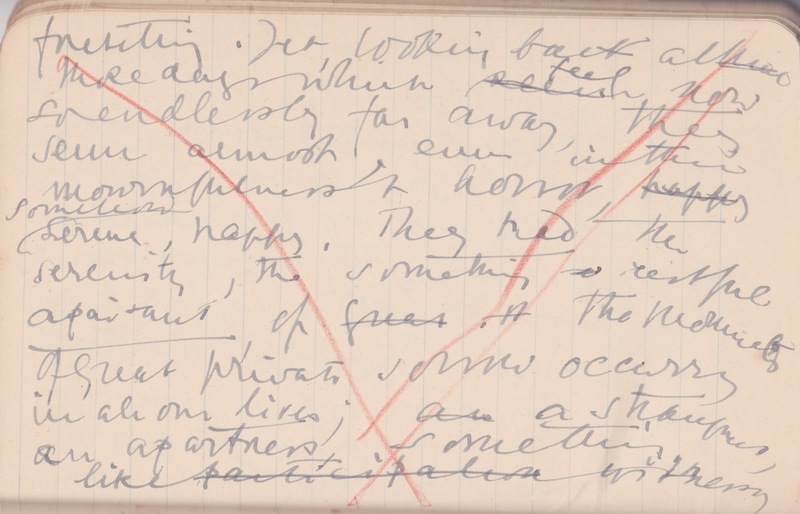 looking back
those days which feel now
so endlessly far away, they
seem almost, even in their
mournfulness & horror, happy
somehow
serene, happy. They had the
serenity, the something restful
apart, of great the moments
of great private sorrows occurring
in all our lives; an a strangeness,
an apartness, something
like participation witnessing